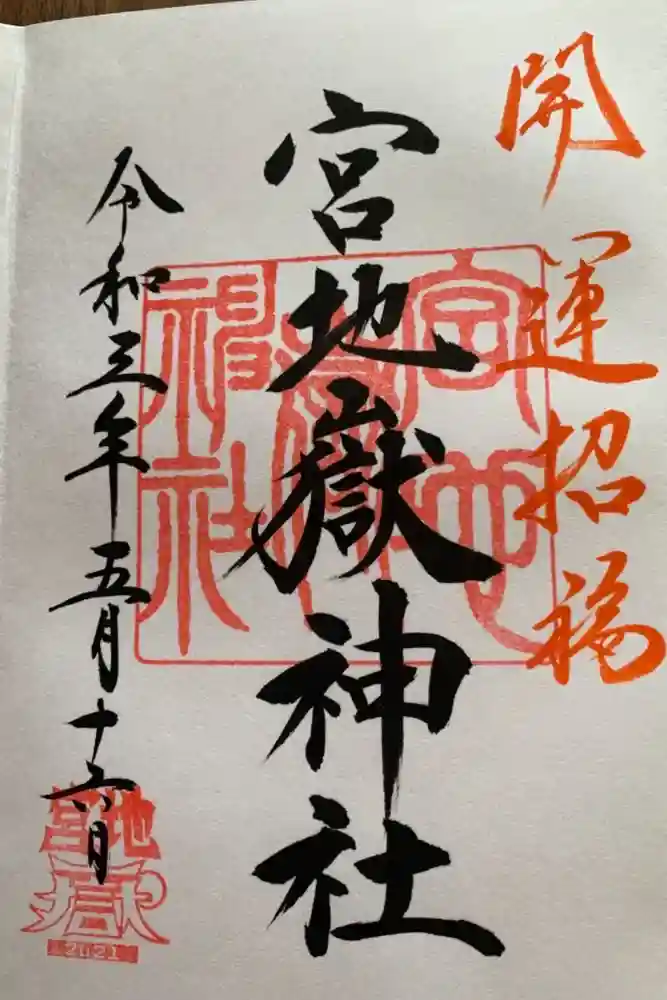 開運招福
宮地嶽神社
宮地
嶽
神社
令和三年五月十六日
宮地
嶽
2021